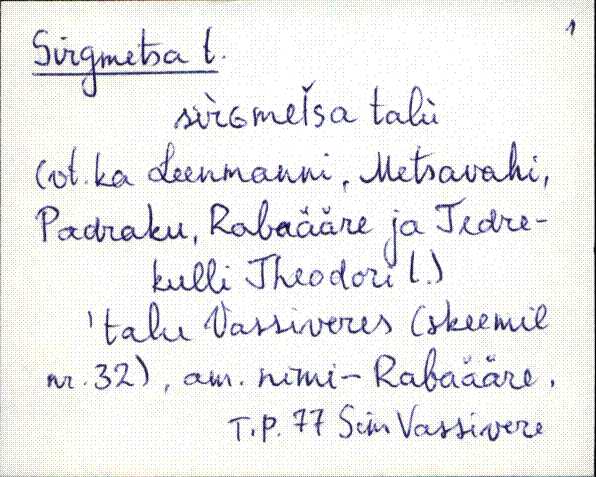 1
Sirgmetsa t.
sirGmeťsa talù
(vt. ka Leenmanni, Metsavahi,
Padraku, Rabaääre ja Tedre-
kulli Theodori t.)
'talu Vassiveres (skeemil
nr. 32), am. nimi - Rabaääre.
T.P. 77 Sim Vassivere